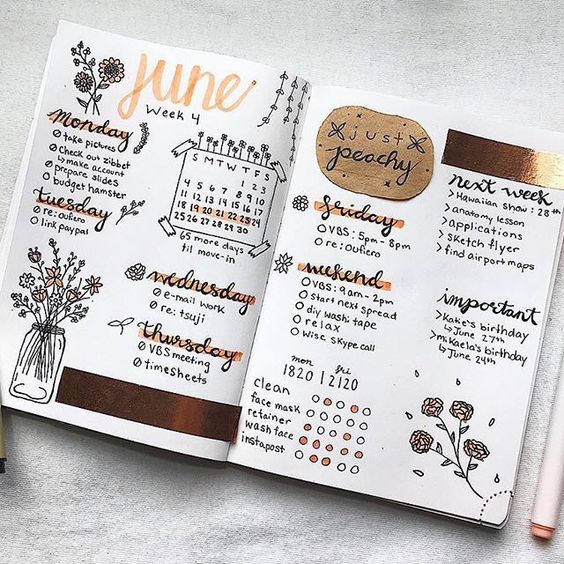 June
Week 4
monday
take pictures
Check out zibbet
↳ make account
prepare slides
budget hamster
tuesday
re: oufiero
link paypal
S M T W T F S
1 2 3
4 5 6 7 8 9 10
11 12 13 14 15 16 17
18 19 20 21 22 23 24
25 26 27 28 29 30
65 more days
til move-in
wednesday
e-mail work
re: tsuji
thursday
VBS meeting
timesheets
just
peachy
friday
VBS: 5pm - 8pm
re: oufiero
weekend
VBS: 9am - 2pm
start next spread
diy washi tape
relax
wise skype call
mon fri
18 20 | 21 20
clean
face mask
retainer
wash face
instapost
next week
> Hawaiian show: 28th
> anatomy lesson
> applications
> sketch flyer
> find airport maps
important
> Kate's birthday
↳ June 27th
> mikaela's birthday
↳ June 24th